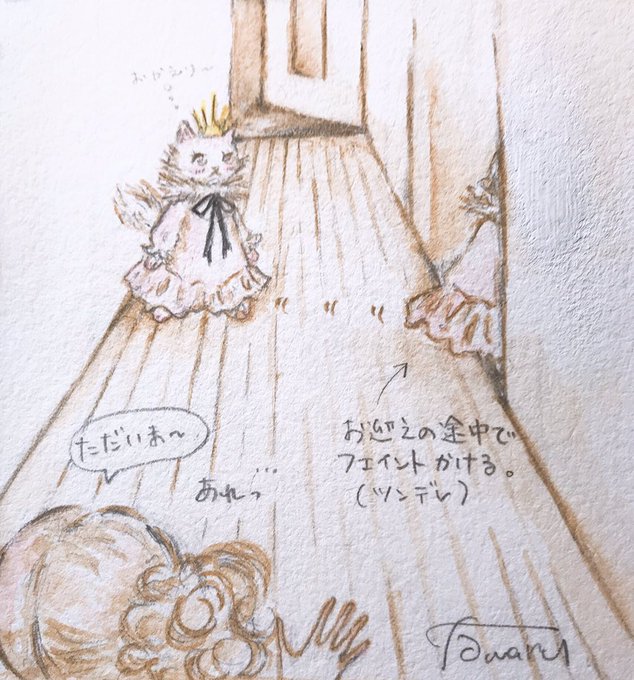 おかえり〜
ただいま〜
あれっ…
お迎えの途中で
フェイントかける。
(ツンデレ)